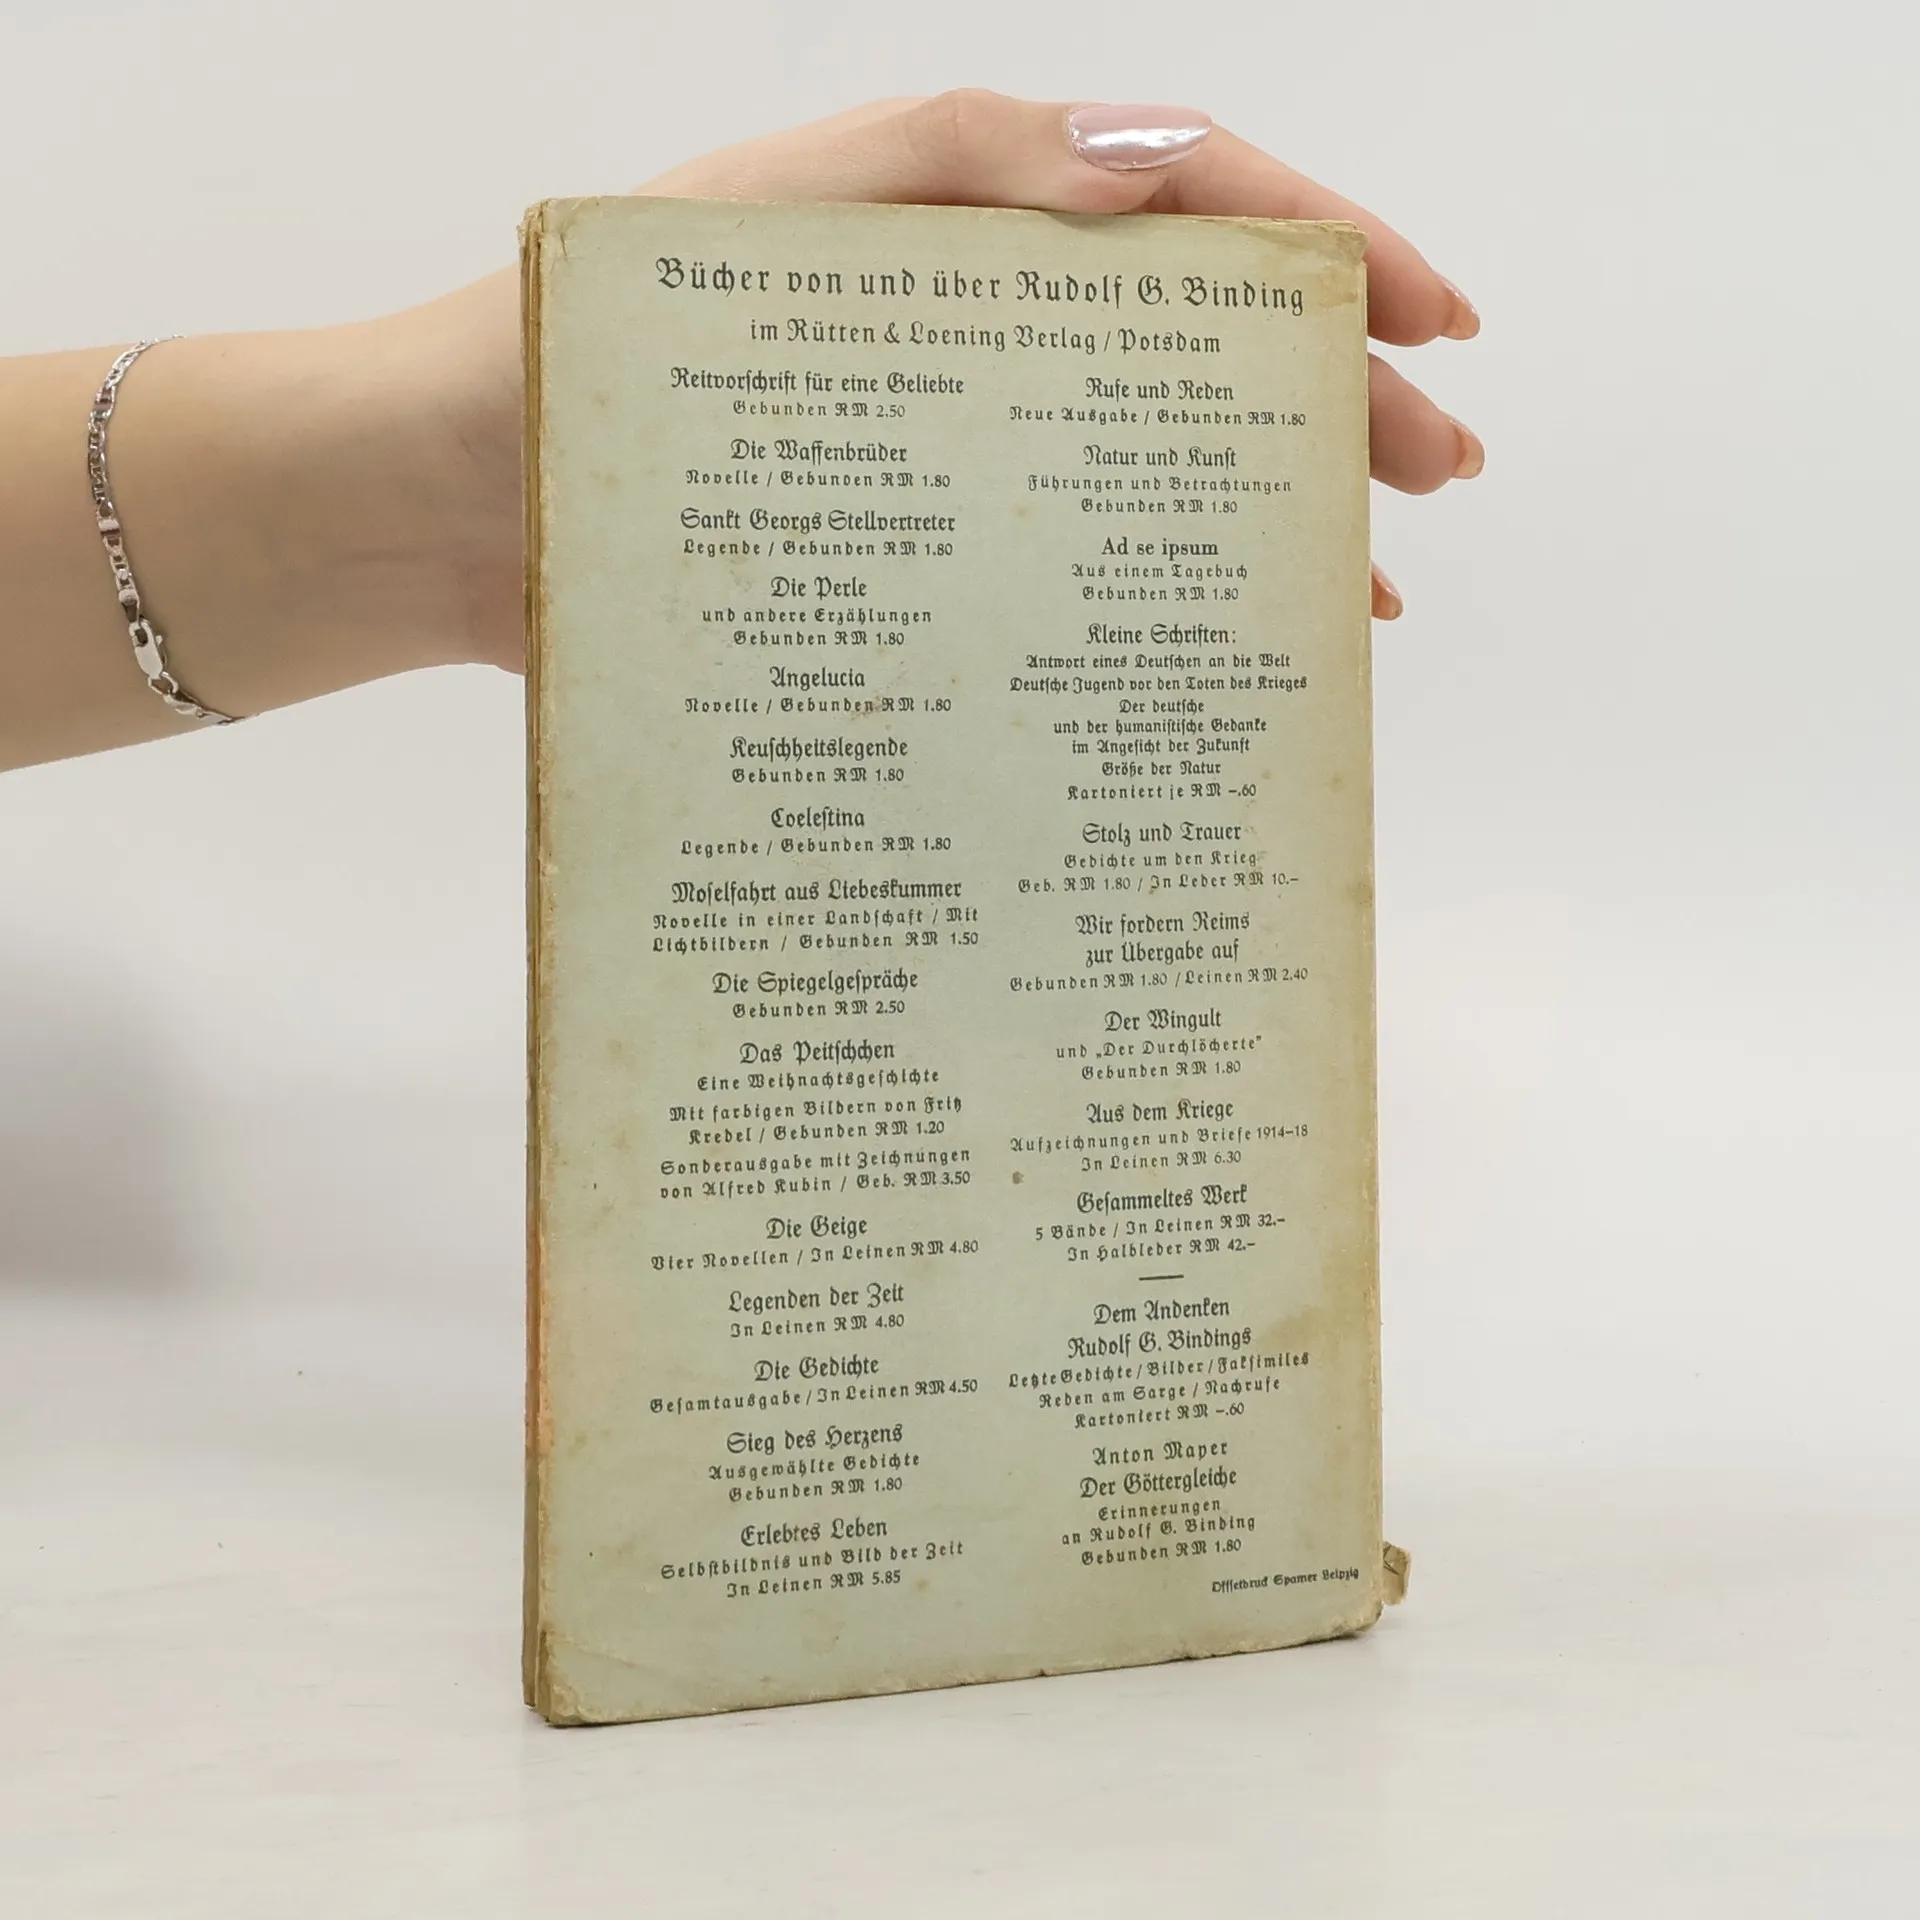 Bücher von und über Rudolf G. Binding
im Rütten & Loening Verlag / Potsdam
Reitvorschrift für eine Geliebte
Gebunden RM 2.50
Die Waffenbrüder
Novelle / Gebunden RM 1.80
Sankt Georgs Stellvertreter
Legende / Gebunden RM 1.80
Die Perle
und andere Erzählungen
Gebunden RM 1.80
Angelucia
Novelle / Gebunden RM 1.80
Keuschheitslegende
Gebunden RM 1.80
Coelestina
Legende / Gebunden RM 1.80
Moselfahrt aus Liebeskummer
Novelle in einer Landschaft / Mit
Lichtbildern / Gebunden RM 1.50
Die Spiegelgespräche
Gebunden RM 2.50
Das Peitschchen
Eine Weihnachtsgeschichte
Mit farbigen Bildern von Fritz
Kredel / Gebunden RM 1.20
Sonderausgabe mit Zeichnungen
von Alfred Kubin / Geb. RM 3.50
Die Geige
Vier Novellen / In Leinen RM 4.80
Legenden der Zeit
In Leinen RM 4.80
Die Gedichte
Gesamtausgabe / In Leinen RM 4.50
Sieg des Herzens
Ausgewählte Gedichte
Gebunden RM 1.80
Erlebtes Leben
Selbstbildnis und Bild der Zeit
In Leinen RM 5.85
Rufe und Reden
Neue Ausgabe / Gebunden RM 1.80
Natur und Kunst
Führungen und Betrachtungen
Gebunden RM 1.80
Ad se ipsum
Aus einem Tagebuch
Gebunden RM 1.80
Kleine Schriften:
Antwort eines Deutschen an die Welt
Deutsche Jugend vor den Toten des Krieges
Der deutsche
und der humanistische Gedanke
im Angesicht der Zukunft
Größe der Natur
Kartoniert je RM –.60
Stolz und Trauer
Gedichte um den Krieg
Geb. RM 1.80 / In Leder RM 10.–
Wir fordern Reims
zur Übergabe auf
Gebunden RM 1.80 / Leinen RM 2.40
Der Wingult
und „Der Durchlöcherte"
Gebunden RM 1.80
Aus dem Kriege
Aufzeichnungen und Briefe 1914–18
In Leinen RM 6.30
Gesammeltes Werk
5 Bände / In Leinen RM 32.–
In Halbleder RM 42.–
Dem Andenken
Rudolf G. Bindings
Letzte Gedichte / Bilder / Faksimiles
Reden am Sarge / Nachrufe
Kartoniert RM –.60
Anton Mayer
Der Göttergleiche
Erinnerungen
an Rudolf G. Binding
Gebunden RM 1.80
Offsetdruck Spamer Leipzig